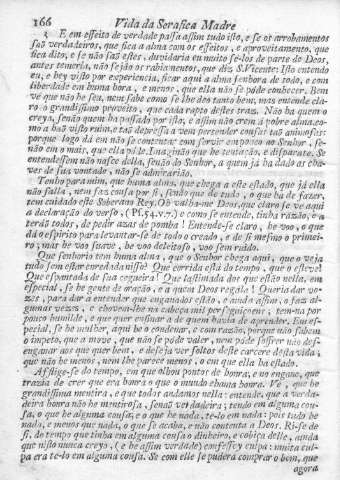 166 Vida da Serafica Madre
3. E em effeito de verdade passa assim tudo isto, e se os arrobamentos
saõ verdadeiros, que fica a alma com os effeitos, e aproveitamento, que
fica dito, e se naõ saõ estes, duvidaria eu muito se-los de parte de Deos,
antes temeria, naõ sejaõ os rabiamentos, que diz S. Vicente: Isto entendo
eu, e hey visto por experiencia, ficar aqui a alma senhora de todo, e com
liberdade em huma hora, e menos, que ella naõ se póde conhecer. Bem
vê que naõ he seu, nem sabe como se lhe deo tanto bem, mas entende cla-
ro o grandissimo proveito, que cada rapto destes traz. Naõ ha quem o
creya, senaõ quem ha passado por isto; e assim naõ crem á pobre alma, co-
mo a haõ visto ruim, e taõ depressa a vem pertender cousas taõ animosas:
porque logo dá em naõ se contentar com servir em pouco ao Senhor, se-
naõ em o mais, que ella póde. Imaginaõ que he tentaçaõ, e disparate. Se
entendessem naõ nasce della, senaõ do Senhor, a quem já ha dado as cha-
ves de sua vontade, naõ se admirariaõ.
Tenho para mim, que huma alma, que chega a este estado, que já ella
naõ falla, nem faz cousa por si, senaõ que de tudo, o que ha de fazer,
tem cuidado este Soberano Rey. Oh valha-me Deos, que claro se ve aqui
a declaraçaõ do verso, (Ps. 54. v. 7.) e como se entende, tinha razaõ, e a
teráõ todos, de pedir azas de pomba! Entende-se claro, he voo, o que
dá o espirito para levantar-se de todo o creado, e de si mesmo o primei-
ro; mas he voo suave, he voo deleitoso, voo sem ruido.
Que senhorio tem huma alma, que o Senhor chega aqui, que o veja
tudo sem estar enredada nisso! Que corrida está do tempo, que o esteve!
Que espantada de sua cegueira! Que lastimada dos que estaõ nella, em
especial, se he gente de oraçaõ, e a quem Deos regála! Queria dar vo-
zes, para dar a entender que enganados estaõ, e ainda assim, o faz al-
gumas vezes, e chovem-lhe na cabeça mil perseguiçoens; tem-na por
pouco humilde, e que quer ensinar a de quem havia de aprender. Em es-
pecial, se he mulher, aqui he o condenar, e com razaõ, porque naõ sabem
o impeto, que a move, que naõ se póde valer, nem póde soffrer naõ des-
enganar aos que quer bem, e deseja ver soltos deste carcere desta vida;
que naõ he menos, nem lhe parece menos, o em que ella ha estado.
Afflige-se do tempo, em que olhou pontos de honra, e no engano, que
trazia de crer que era honra o que o mundo chama honra. Vê, que he
grandissima mentira, e que todos andamos nella: entende, que a verda-
deira honra naõ he mentirosa, senaõ verdadeira; tendo em alguma cou-
sa, o que he alguma cousa; e o que he nada, te-lo em nada: pois tudo he
nada, e menos que nada, o que se acaba, e naõ contenta a Deos. Ri-se de
si, do tempo que tinha em alguma cousa o dinheiro, e cobiça delle, ainda
que nisto nunca creyo, (e he assim verdade) confessey culpa: muita cul-
pa era te-lo em alguma cousa. Se com elle se pudera comprar o bem, que
agora